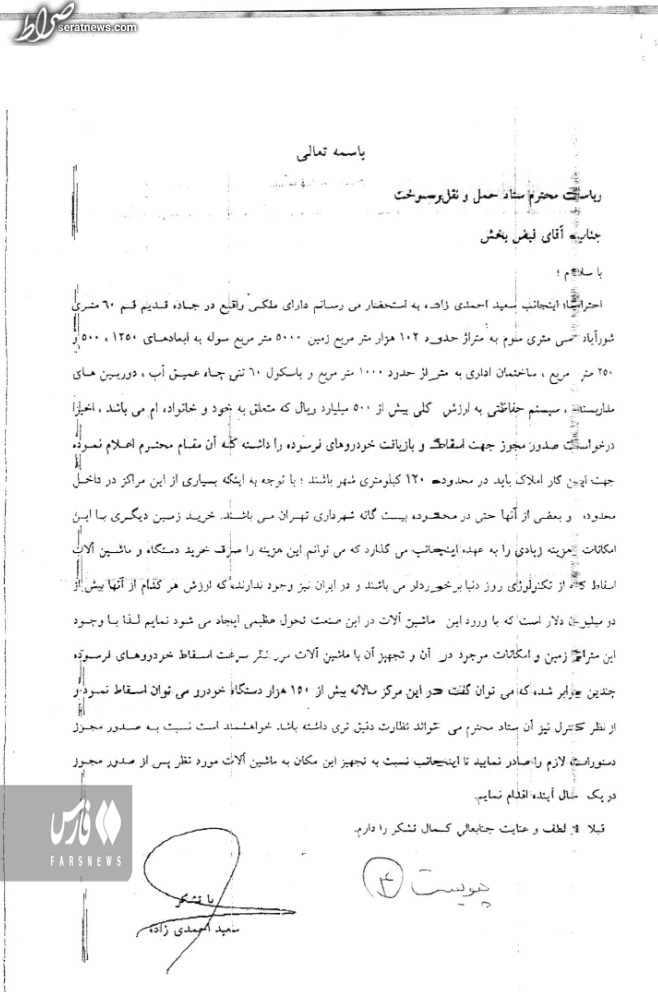 صراط
seratnews.com
باسمه تعالی
ریاست محترم ستاد حمل و نقل و سوخت
جناب آقای فیض بخش
با سلام ؛
احتراماً اینجانب سعید احمدی زاده به استحضار می رسانم دارای ملکی واقع در جاده قدیم قم ۶۰ متری
شورآباد سی متری سوم به متراژ حدود ۱۰۲ هزار متر مربع زمین ۵۰۰۰ متر مربع سوله به ابعادهای ۱۲۵۰ ، ۵۰۰ و
۲۵۰ متر مربع ، ساختمان اداری به متراژ حدود ۱۰۰۰ متر مربع و باسکول ۶۰ تنی چاه عمیق آب ، دوربین های
مداربسته ، سیستم حفاظتی به ارزش کلی بیش از ۵۰۰ میلیارد ریال که متعلق به خود و خانواده ام می باشد ، اخیرا
درخواست صدور مجوز جهت اسقاط و بازیافت خودروهای فرسوده را داشته که آن مقام محترم اعلام نموده
جهت این کار املاک باید در محدوده ۱۲۰ کیلومتری شهر باشند ؛ با توجه به اینکه بسیاری از این مراکز در داخل
محدوده و بعضی از آنها حتی در محدوده بیست گانه شهرداری تهران می باشند. خرید زمین دیگری با این
امکانات هزینه زیادی را به عهده اینجانب می گذارد که می توانم این هزینه را صرف خرید دستگاه و ماشین آلات
اسقاط که از تکنولوژی روز دنیا برخوردار می باشند و در ایران نیز وجود ندارند، که ارزش هر کدام از آنها بیش از
دو میلیون دلار است که با ورود این ماشین آلات در این صنعت تحول عظیمی ایجاد می شود نمایم لذا با وجود
این متراژ زمین و امکانات موجود در آن و تجهیز آن با ماشین آلات مورد نظر سرعت اسقاط خودروهای فرسوده
چندین برابر شده که می توان گفت در این مرکز سالانه بیش از ۱۵۰ هزار دستگاه خودرو می توان اسقاط نمود و
از نظر کنترل نیز آن ستاد محترم می تواند نظارت دقیق تری داشته باشد. خواهشمند است نسبت به صدور مجوز
دستورات لازم را صادر نمایید تا اینجانب نسبت به تجهیز این مکان به ماشین آلات مورد نظر پس از صدور مجوز
در یک سال آینده اقدام نمایم.
قبلا از لطف و عنایت جنابعالی کمال تشکر را دارم.
فارس
FARSNEWS
پیوست ۴
با تشکر
سعید احمدی زاده